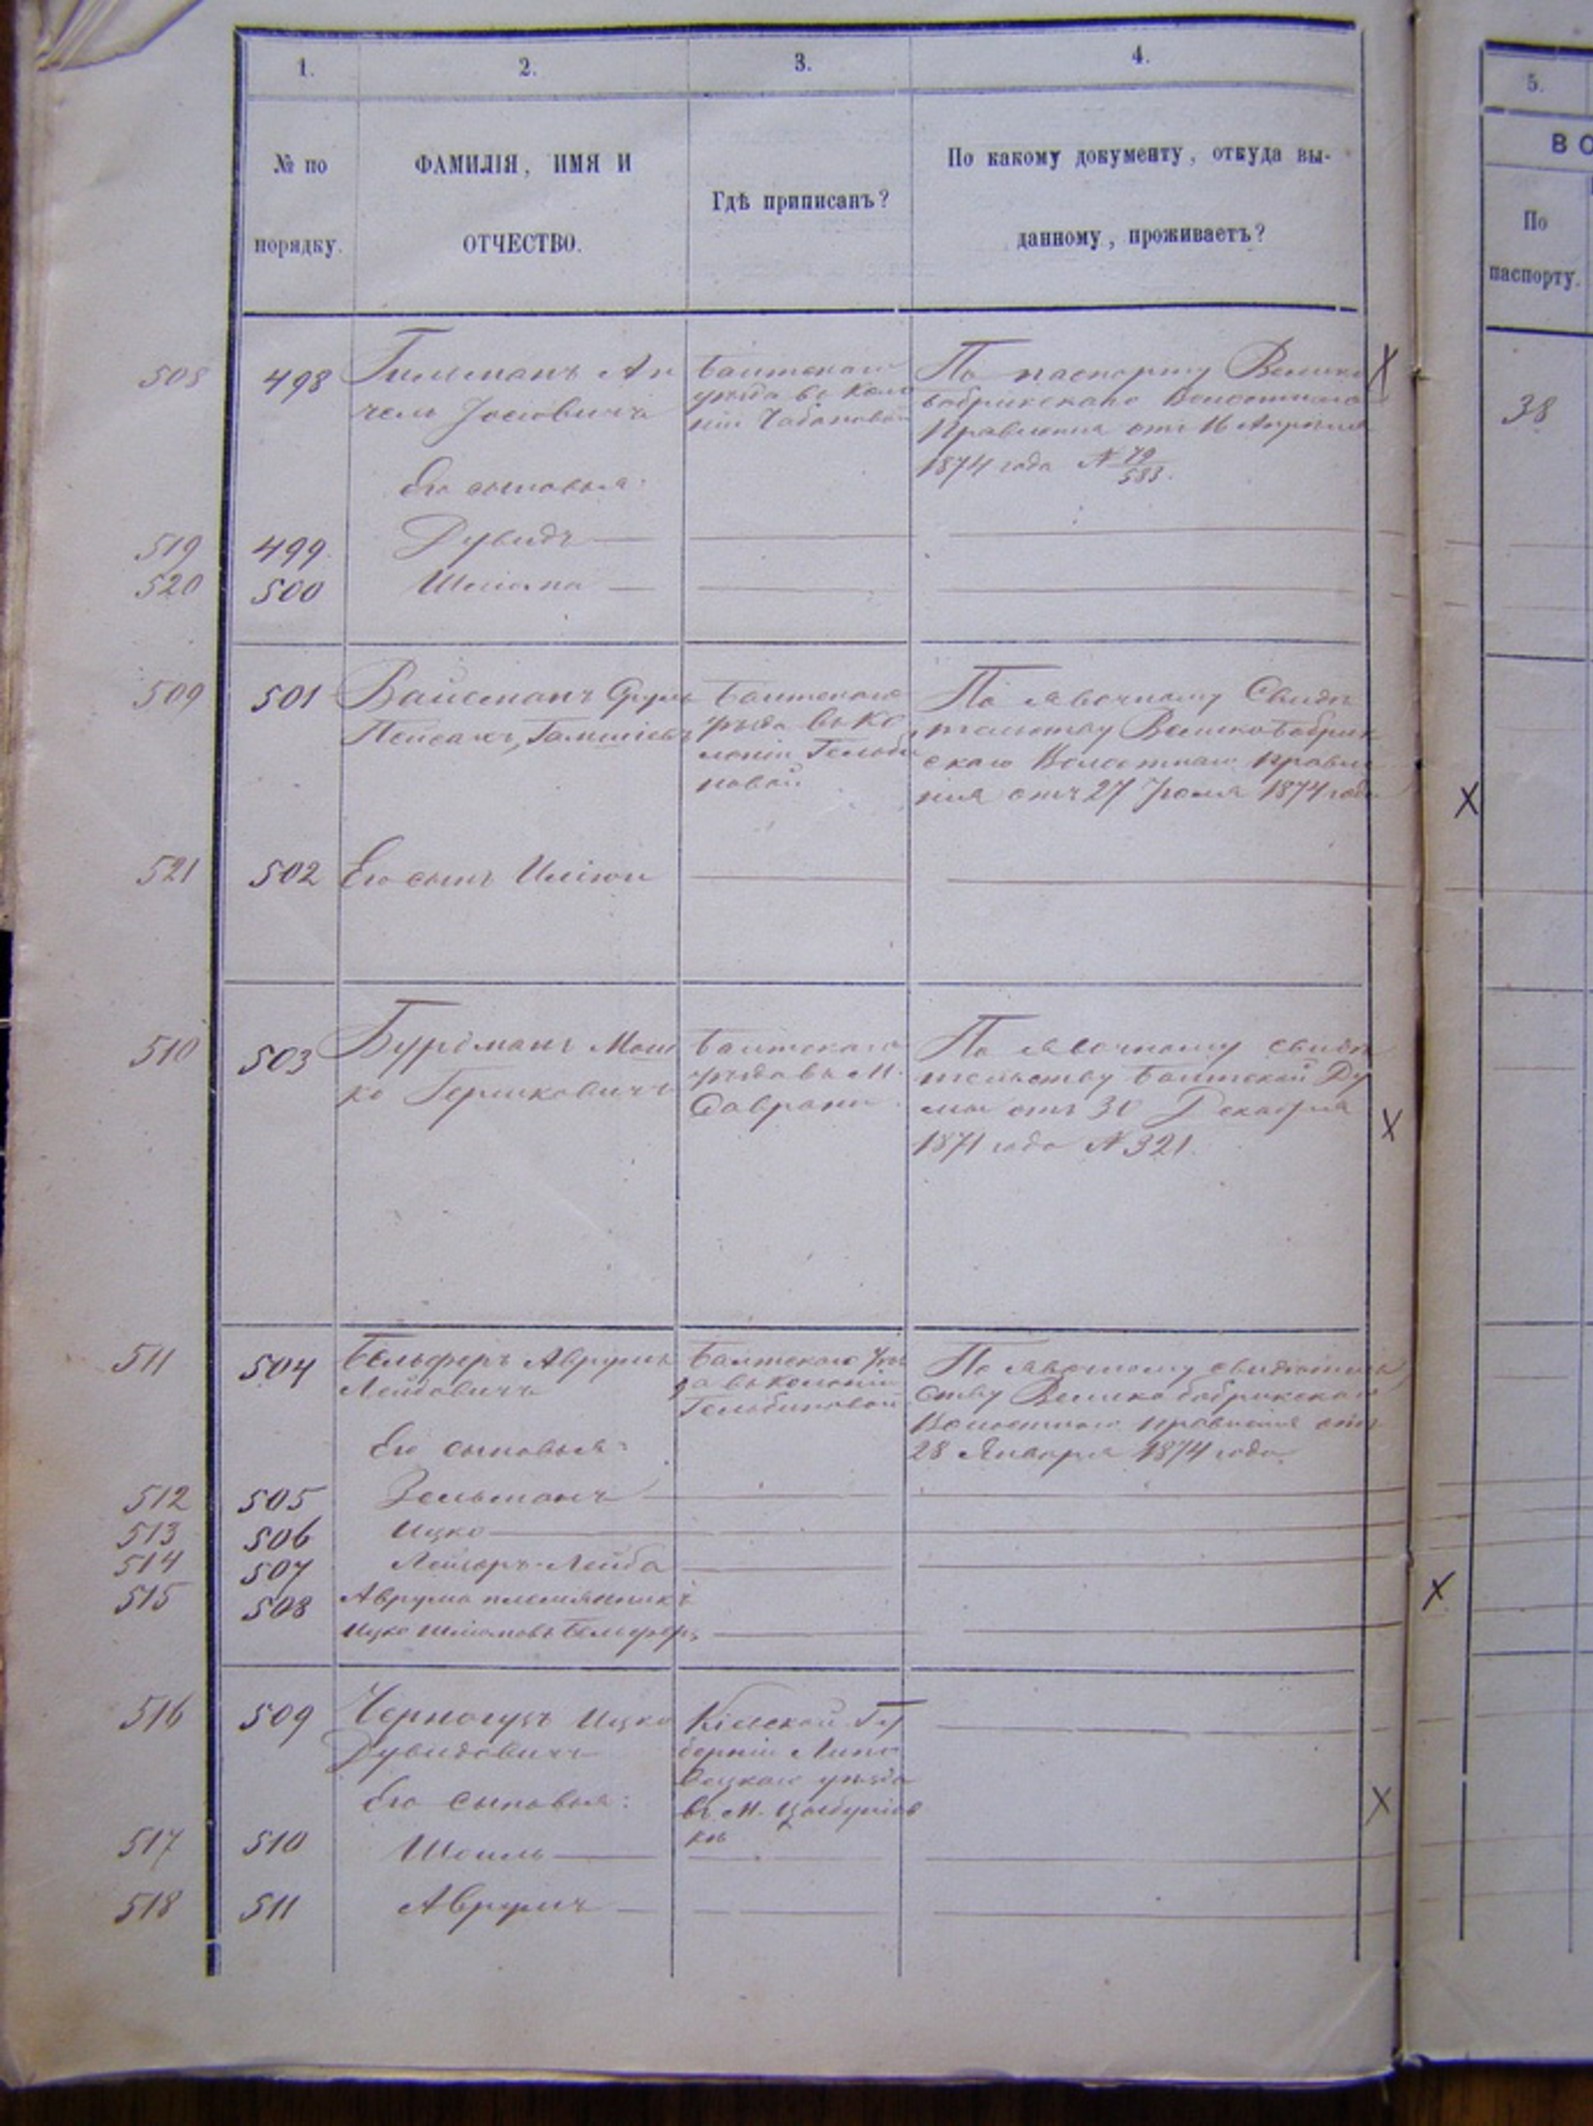 1. 2. 3. 4.
№ по порядку.
ФАМИЛІЯ, ИМЯ И
ОТЧЕСТВО.
Гдѣ приписанъ?
По какому документу, откуда вы-
данному, проживаетъ?
508 498
Балтскаго
уѣзда въ Коло
ніи Чабановой
По паспорту Велико
бобрикскаго Волостнаго
Правленія отъ 16 Апрѣля
1874 года № 79/583.
Его сыновья:
519 499 Дувидъ
520 500 Шлiома
509 501 Вайсманъ Сруль
Пейсахъ
Балтскаго
уѣзда въ Ко
лоніи
По явочному Свидѣ
тельству Великобобрик
скаго Волостнаго Правле
нія отъ 27 1874 года
521 502 Его сынъ
510 503 Бурдманъ Мош
ко Гершковичъ
Балтскаго
уѣзда въ М.
Саврани
По явочному свидѣ
тельству Балтской Ду
мы отъ 30 Декабря
1871 года № 321.
511 504 Бельферъ Аврумъ
Лейбовичъ
Балтскаго уѣз
да въ колоніи
По явочному свидѣтель
ству Великобобрикскаго
Волостнаго правленія отъ
28 Января 1874 года
Его сыновья:
512 505 Зельманъ
513 506 Ицко
514 507 Лейзоръ-Лейба
515 508 Аврума племянникъ
Ицко Шліомовъ Бельферъ
516 509 Ицко
Дувидовичъ
Кіевской Гу
берніи Липо
вецкаго уѣзда
въ М.
Его сыновья:
517 510 Шоиль
518 511 Аврумъ
5.
ВО
По
паспорту.
38